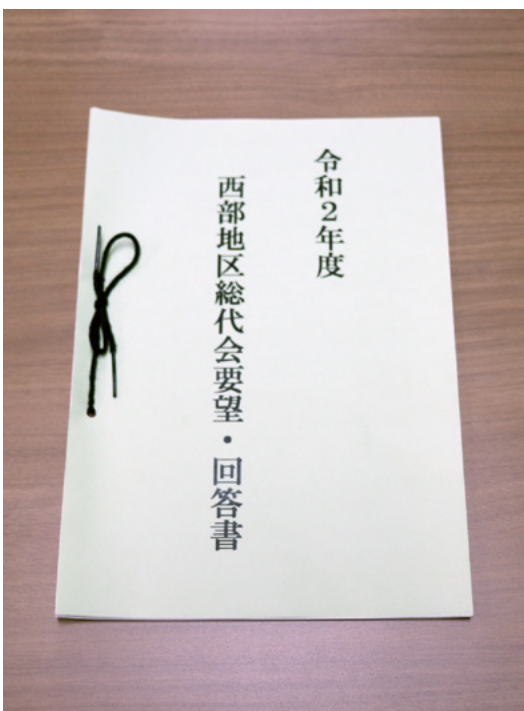 令和2年度
西部地区総代会要望・回答書